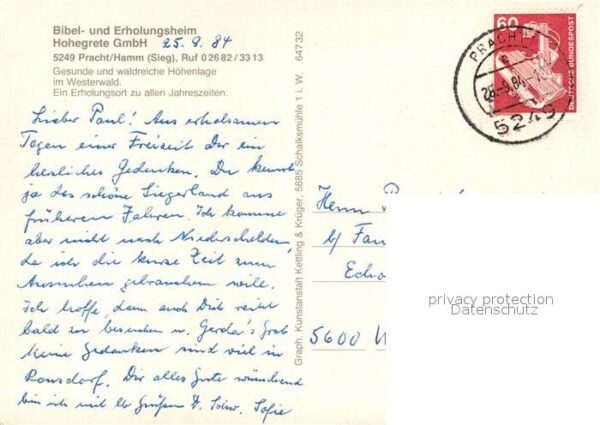 Bibel- und Erholungsheim
Hohegrete GmbH 25.9.84
5249 Pracht/Hamm (Sieg), Ruf 0 26 82 / 33 13
Gesunde und waldreiche Höhenlage
im Westerwald.
Ein Erholungsort zu allen Jahreszeiten.
Lieber Paul! Aus erholsamen
Tagen einer Freizeit Dir ein
herzliches Gedenken. Du kennst
ja das schöne Siegerland aus
früheren Jahren. Ich komme
aber nicht nach Niederschelden,
da ich die kurze Zeit zum
Ausruhen gebrauchen will.
Ich hoffe, dann auch Dich recht
bald zu besuchen u. Gerda's Grab
Meine Gedanken sind viel in
Ronsdorf. Dir alles Gute wünschend
bin ich mit lb Grüßen D. Schw. Sofie
Graph. Kunstanstalt Kettling & Krüger, 5885 Schalksmühle 1 i. W. 64732
60
DEUTSCHE BUNDESPOST
PRACHT
28.-9.84
5249
Herrn
b/ Fam
5600 W
privacy protection
Datenschutz